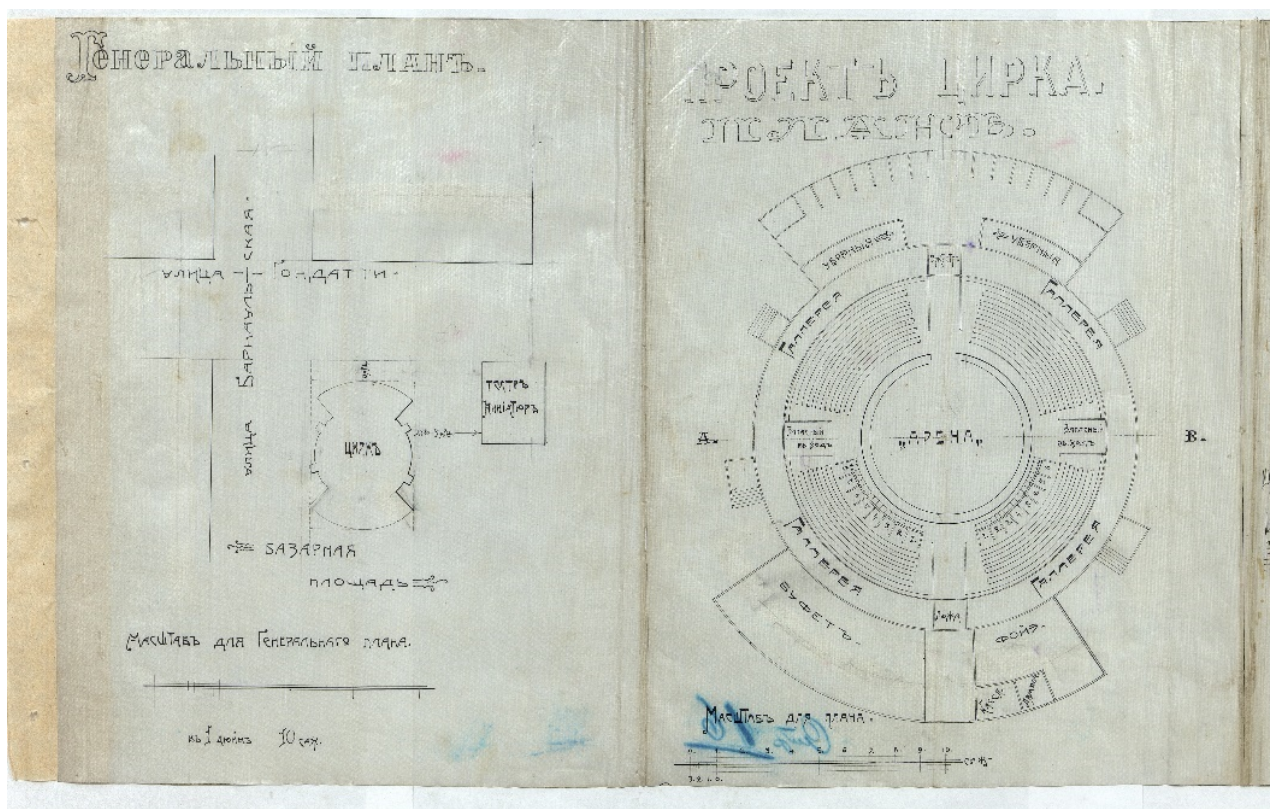 Генеральный планъ.
улица Гондатти.
улица Барнаульская.
театръ
миніатюръ
циркъ
базарная
площадь
Масштабъ для Генеральнаго плана.
въ 1 дюймѣ 10 саж.
Проектъ цирка.
уборныя
уборныя
Галлерея
Галлерея
Запасный
выходъ
„Арена“
Запасный
выходъ
А.
В.
Галлерея
Галлерея
Буфетъ.
Ложа
Фойэ.
Касса
Масштабъ для плана.
0. 1. 2. 3. 4. 5. 6. 7. 8. 9. 10. саж.
3. 2. 1. 0.